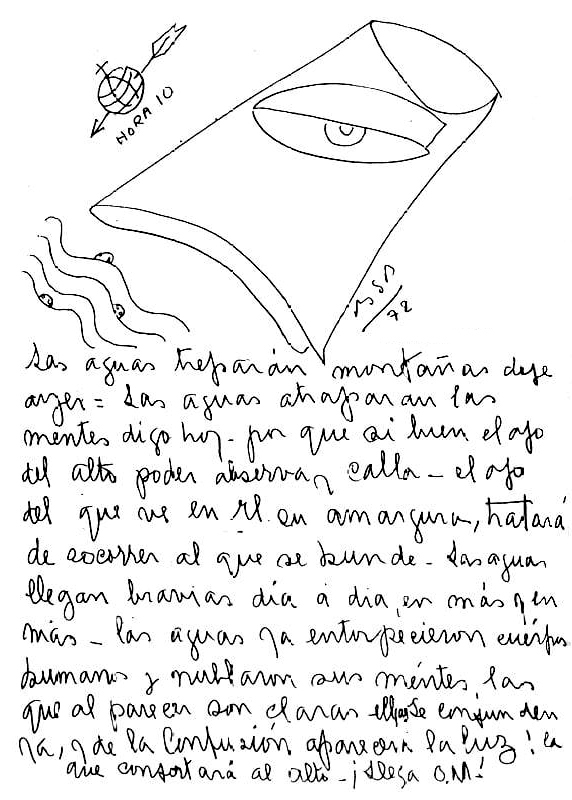 HORA 10
BSP
72
Las aguas treparán montañas dije
ayer = Las aguas atraparan las
mentes digo hoy - por que si bien el ojo
del alto poder observa y calla - el ojo
del que ve en él su amargura, tratará
de socorrer al que se hunde - Las aguas
llegan bravias día á dia, en más y en
más - las aguas ya entorpecieron cuérpos
humanos y nublaron sus méntes las
que al parecer son claras se confunden
ya, y de la Confusión aparecerá la luz! la
que confortará al alto - ¡Llega O.M!